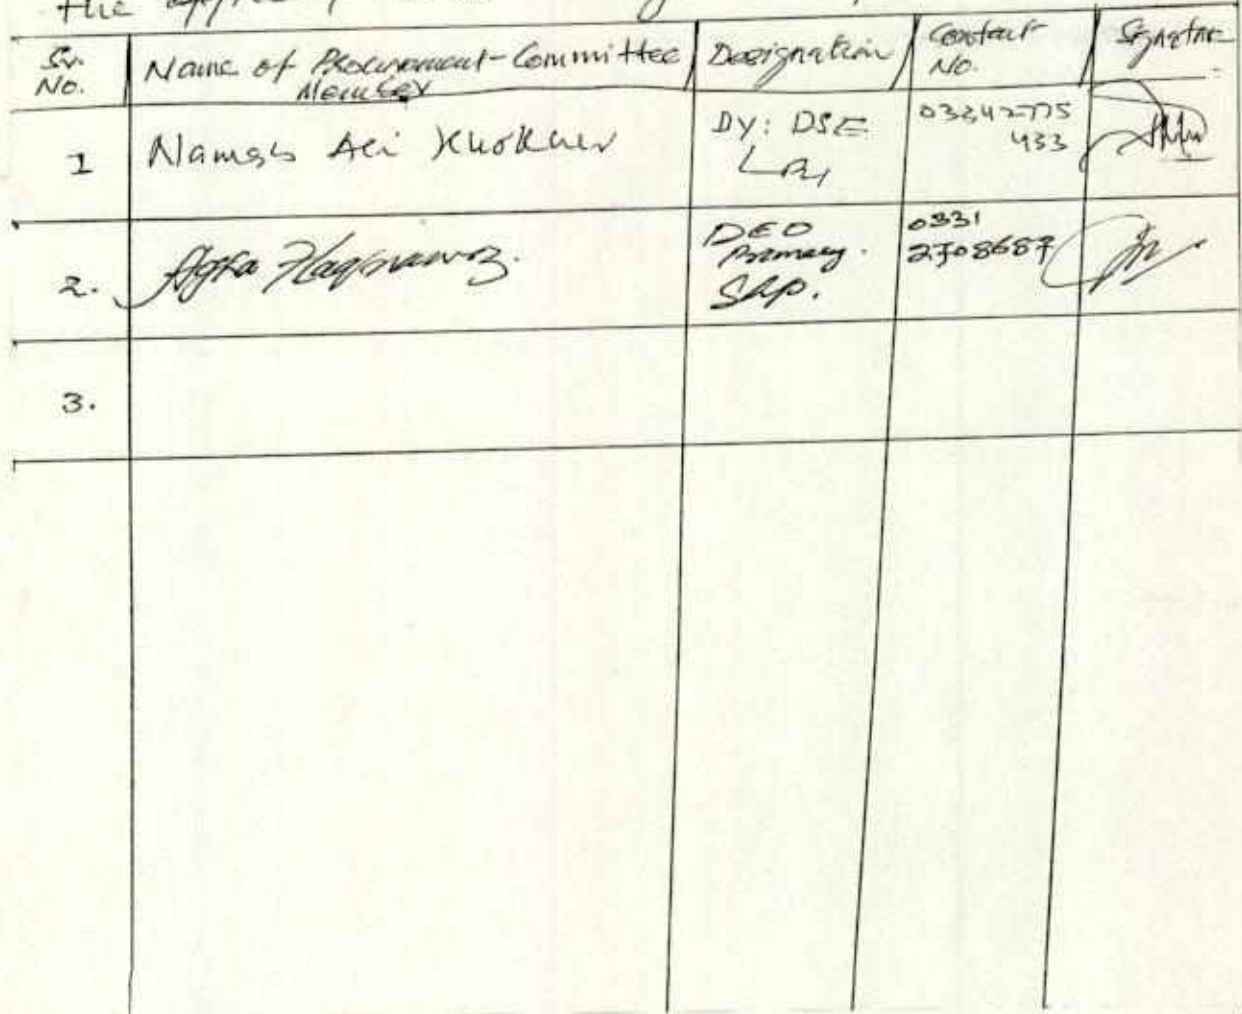 the
Sr. No. Name of Procurement-Committee Member Designation Contact No. Signature
1 Ali Khokhar DY: DSE 03342775 433
2. Agha Haqnawaz. DEO Primary. SKP. 0331 2708687
3.